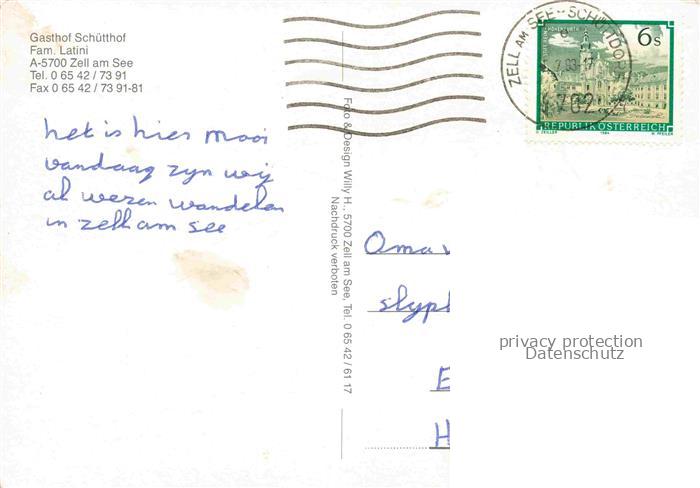 Gasthof Schütthof
Fam. Latini
A-5700 Zell am See
Tel. 0 65 42 / 73 91
Fax 0 65 42 / 73 91-81
het is hier mooi
vandaag zyn wij
al wezen wandelen
in zell am see
Foto & Design Willy H., 5700 Zell am See, Tel. 0 65 42 / 61 17
Nachdruck verboten
ZELL AM SEE - SCHÜTTDORF
6 S
REPUBLIK ÖSTERREICH
Oma
slyp
E
H
privacy protection
Datenschutz